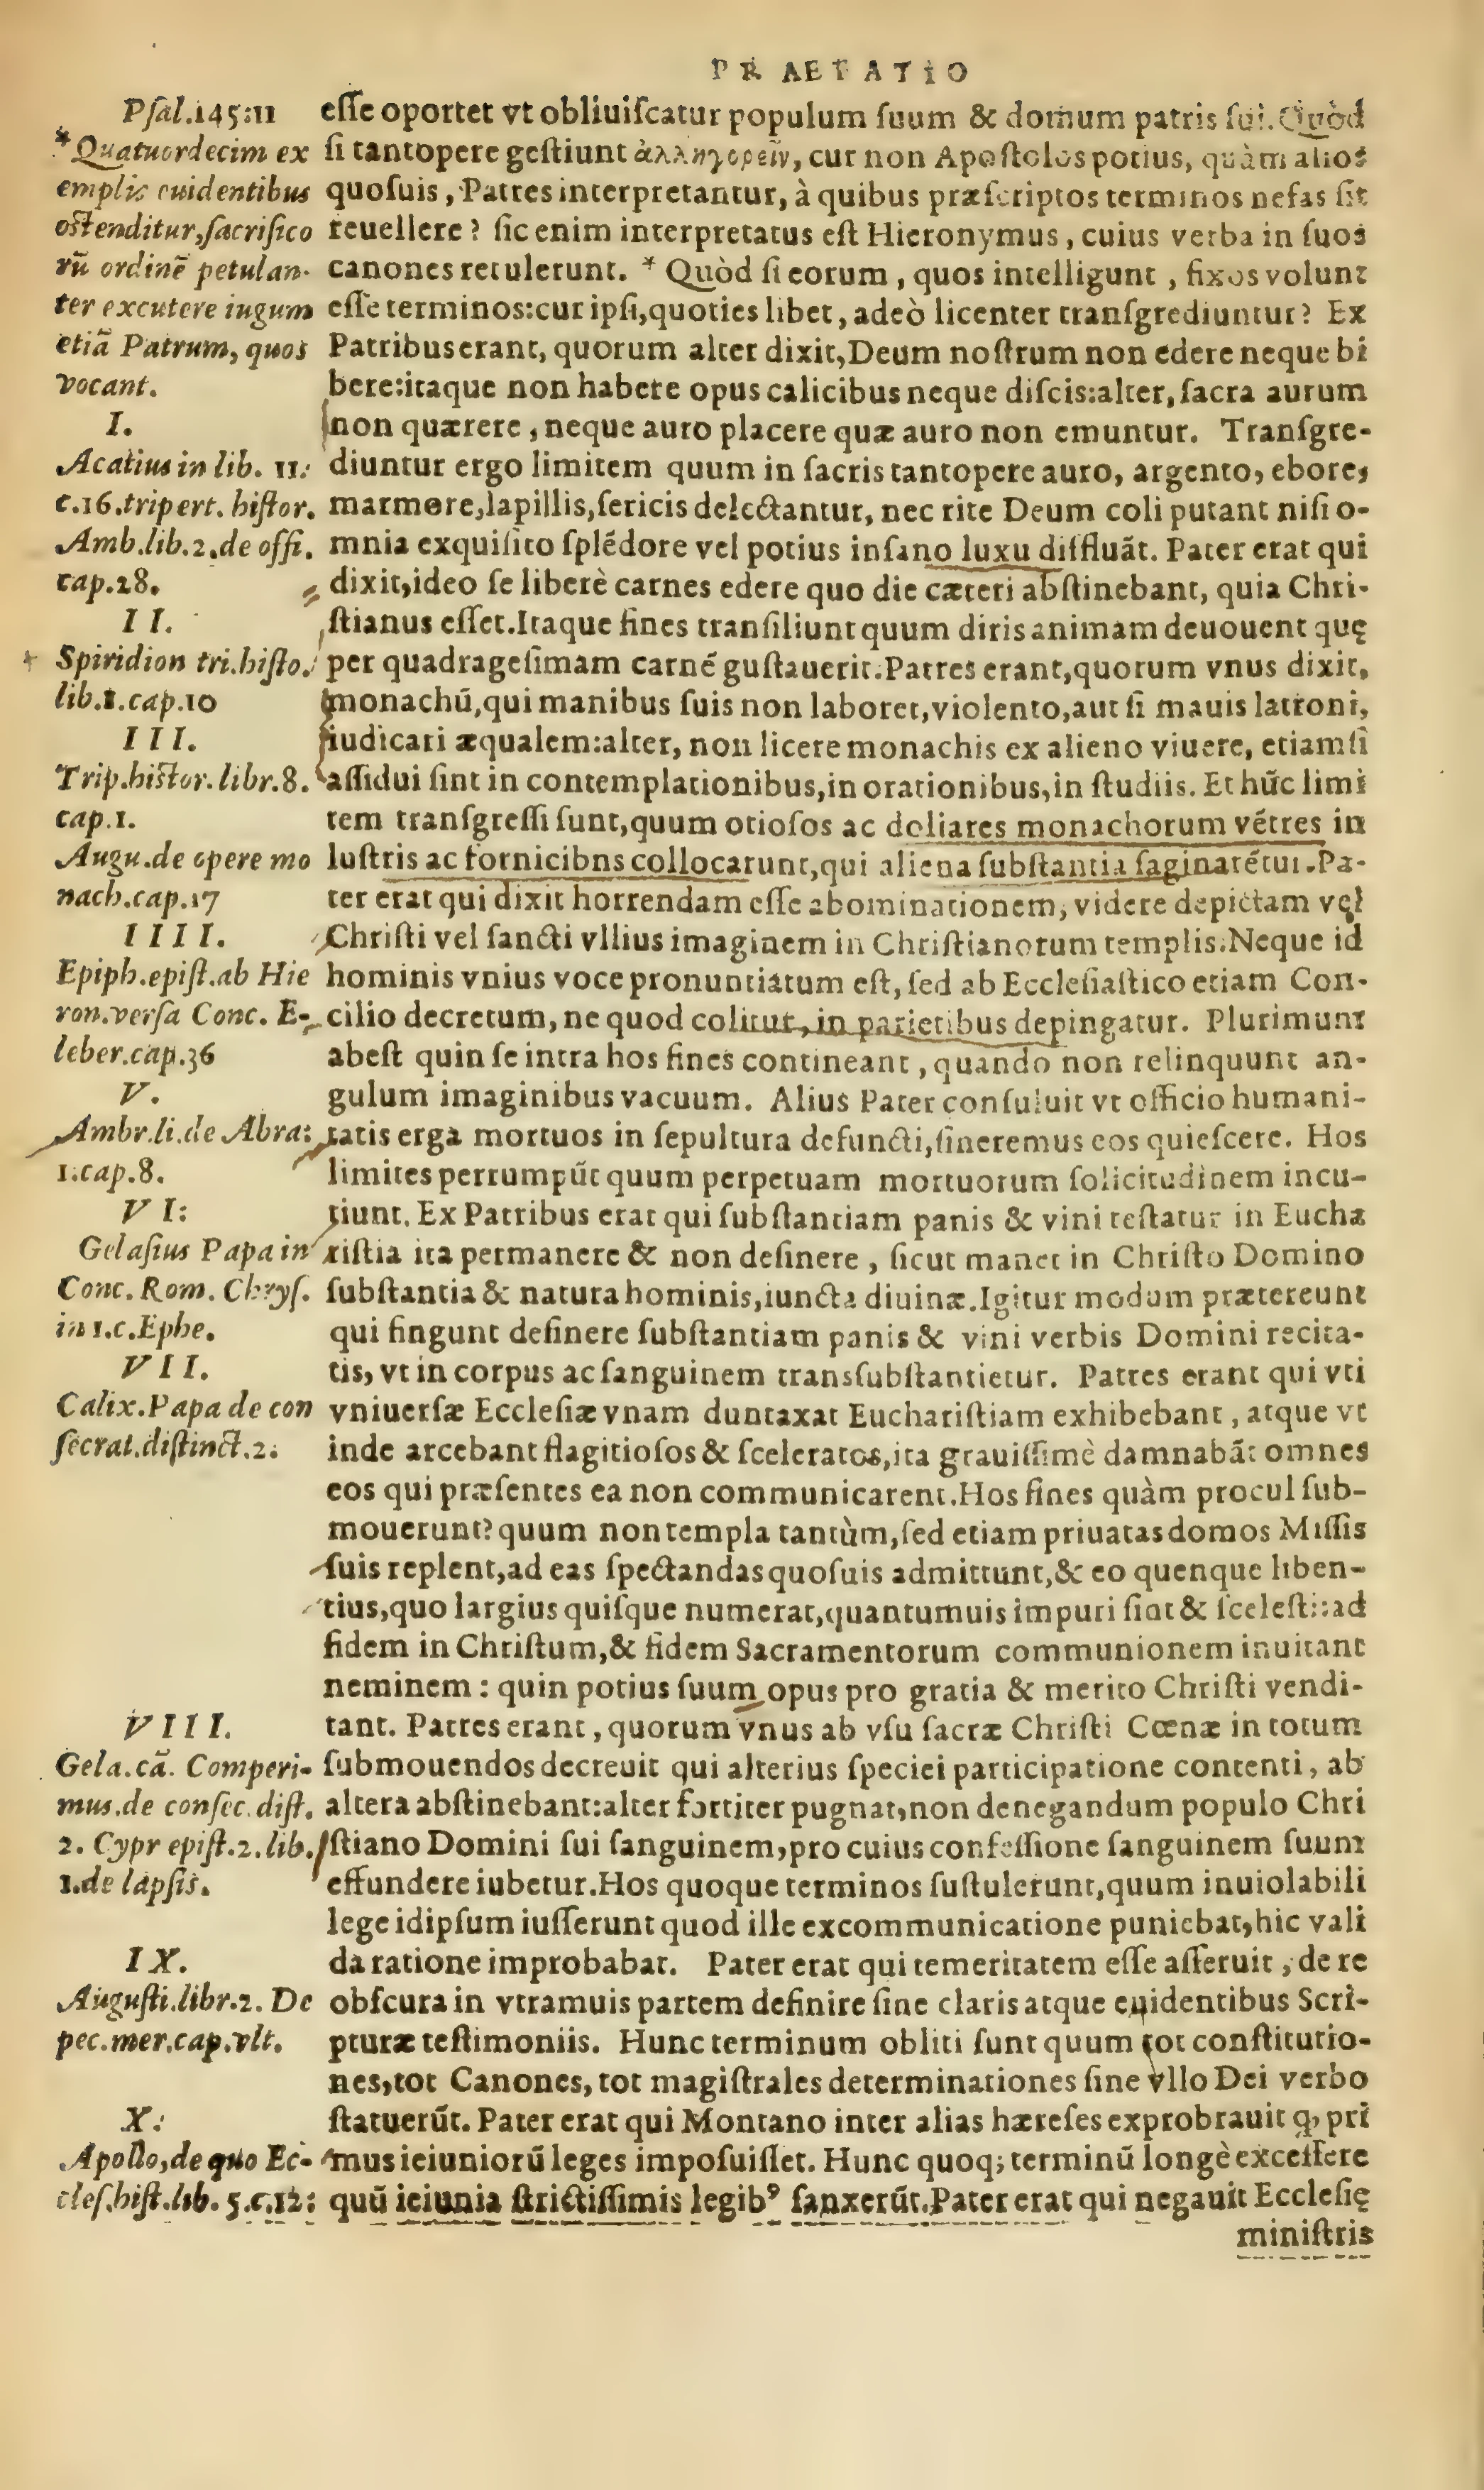 PRAEFATIO
Psal.145:11
*Quatuordecim ex
emplis euidentibus
ostenditur,sacrifico
rũ ordinẽ petulan-
ter excutere iugum
etiã Patrum, quos
vocant.
I.
Acatius in lib. 11:
c.16.tripert. histor.
Amb.lib.2.de offi.
cap.28.
II.
Spiridion tri.histo.
lib.1.cap.10
III.
Trip.histor.libr.8.
cap.1.
Augu.de opere mo
nach.cap.17
IIII.
Epiph.epist.ab Hie
ron.versa Conc. E-
leber.cap.36
V.
Ambr.li.de Abra:
1.cap.8.
VI:
Gelasius Papa in
Conc. Rom. Chrys.
in 1.c.Ephe.
VII.
Calix.Papa de con
secrat.distinct.2.
VIII.
Gela.cã. Comperi-
mus.de consec.dist.
2. Cypr epist.2.lib.
1.de lapsis.
IX.
Augusti.libr.2. De
pec.mer.cap.vlt.
X:
Apollo,de quo Ec-
cles.hist.lib. 5.c.12:
esse oportet vt obliuiscatur populum suum & domum patris sui. Quòd
si tantopere gestiunt ἀλληγορεῖν, cur non Apostolos potius, quàm alios
quosuis, Patres interpretantur, à quibus præscriptos terminos nefas sit
reuellere? sic enim interpretatus est Hieronymus, cuius verba in suos
canones retulerunt. * Quòd si eorum, quos intelligunt, fixos volunt
esse terminos:cur ipsi,quoties libet, adeò licenter transgrediuntur? Ex
Patribus erant, quorum alter dixit,Deum nostrum non edere neque bi
bere:itaque non habere opus calicibus neque discis:alter, sacra aurum
non quærere, neque auro placere quæ auro non emuntur. Transgre-
diuntur ergo limitem quum in sacris tantopere auro, argento, ebore,
marmore,lapillis,sericis delectantur, nec rite Deum coli putant nisi o-
mnia exquisito splẽdore vel potius insano luxu diffluãt. Pater erat qui
dixit,ideo se liberè carnes edere quo die cæteri abstinebant, quia Chri-
stianus esset.Itaque fines transiliunt quum diris animam deuouent quę
per quadragesimam carnẽ gustauerit.Patres erant,quorum vnus dixit,
monachũ,qui manibus suis non laboret,violento,aut si mauis latroni,
iudicari æqualem:alter, non licere monachis ex alieno viuere, etiamsi
assidui sint in contemplationibus,in orationibus,in studiis. Et hũc limi
tem transgressi sunt,quum otiosos ac doliares monachorum vẽtres in
lustris ac fornicibns collocarunt,qui aliena substantia saginarẽtur.Pa-
ter erat qui dixit horrendam esse abominationem, videre depictam vel
Christi vel sancti vllius imaginem in Christianorum templis.Neque id
hominis vnius voce pronuntiatum est, sed ab Ecclesiastico etiam Con-
cilio decretum, ne quod colitur, in parietibus depingatur. Plurimum
abest quin se intra hos fines contineant, quando non relinquunt an-
gulum imaginibus vacuum. Alius Pater consuluit vt officio humani-
tatis erga mortuos in sepultura defuncti,sineremus eos quiescere. Hos
limites perrumpũt quum perpetuam mortuorum solicitudinem incu-
tiunt. Ex Patribus erat qui substantiam panis & vini testatur in Eucha
ristia ita permanere & non desinere, sicut manet in Christo Domino
substantia & natura hominis,iuncta diuinæ.Igitur modum prætereunt
qui fingunt desinere substantiam panis & vini verbis Domini recita-
tis, vt in corpus ac sanguinem transsubstantietur. Patres erant qui vti
vniuersæ Ecclesiæ vnam duntaxat Eucharistiam exhibebant, atque vt
inde arcebant flagitiosos & sceleratos,ita grauissimè damnabãt omnes
eos qui præsentes ea non communicarent.Hos fines quàm procul sub-
mouerunt? quum non templa tantùm,sed etiam priuatas domos Missis
suis replent,ad eas spectandas quosuis admittunt,& eo quenque liben-
tius,quo largius quisque numerat,quantumuis impuri sint & scelesti:ad
fidem in Christum,& fidem Sacramentorum communionem inuitant
neminem: quin potius suum opus pro gratia & merito Christi vendi-
tant. Patres erant, quorum vnus ab vsu sacræ Christi Cœnæ in totum
submouendos decreuit qui alterius speciei participatione contenti, ab
altera abstinebant:alter fortiter pugnat,non denegandum populo Chri
stiano Domini sui sanguinem,pro cuius confessione sanguinem suum
effundere iubetur.Hos quoque terminos sustulerunt,quum inuiolabili
lege idipsum iusserunt quod ille excommunicatione puniebat,hic vali
da ratione improbabat. Pater erat qui temeritatem esse asseruit, de re
obscura in vtramuis partem definire sine claris atque euidentibus Scri-
pturæ testimoniis. Hunc terminum obliti sunt quum tot constitutio-
nes,tot Canones, tot magistrales determinationes sine vllo Dei verbo
statuerũt. Pater erat qui Montano inter alias hæreses exprobrauit q, pri
mus ieiuniorũ leges imposuisset. Hunc quoq; terminũ longè excessere
quũ ieiunia strictissimis legibꝰ sanxerũt.Pater erat qui negauit Ecclesię
ministris